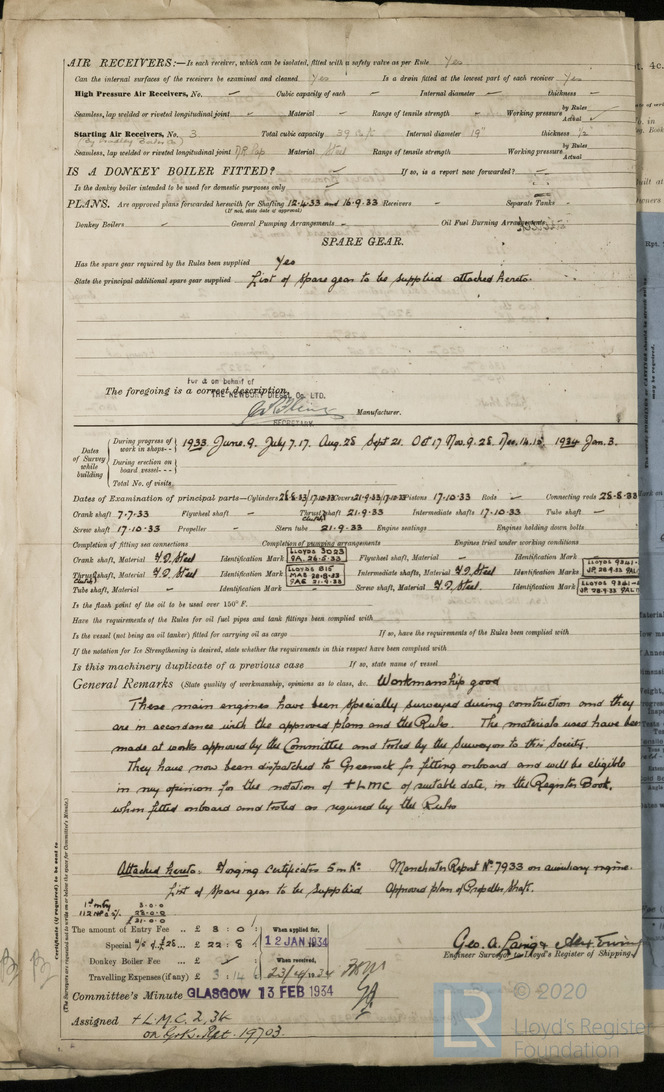 AIR RECEIVERS:—Is each receiver, which can be isolated, fitted with a safety valve as per Rule Yes
Can the internal surfaces of the receivers be examined and cleaned Yes Is a drain fitted at the lowest part of each receiver Yes
High Pressure Air Receivers, No. – Cubic capacity of each – Internal diameter – thickness –
Seamless, lap welded or riveted longitudinal joint – Material – Range of tensile strength – Working pressure by Rules Actual
Starting Air Receivers, No. 3 Total cubic capacity 39 Internal diameter 19" thickness ½
Seamless, lap welded or riveted longitudinal joint Material Steel Range of tensile strength Working pressure by Rules Actual
IS A DONKEY BOILER FITTED? – If so, is a report now forwarded? –
Is the donkey boiler intended to be used for domestic purposes only –
PLANS. Are approved plans forwarded herewith for Shafting 12.4.33 and 16.9.33 Receivers – Separate Tanks –
(If not, state date of approval)
Donkey Boilers – General Pumping Arrangements – Oil Fuel Burning Arrangements
SPARE GEAR.
Has the spare gear required by the Rules been supplied Yes
State the principal additional spare gear supplied List of spare gear to be supplied attached hereto.
For & on behalf of
The foregoing is a correct description,
THE NEWBURY DIESEL Co. LTD.
Manufacturer.
SECRETARY
Dates of Survey while building
During progress of work in shops-- 1933 June. 9. July 7. 17. Aug. 28 Sept 21. Oct 17 Nov. 9. 28. Dec. 14. 15. 1934 Jan. 3.
During erection on board vessel---
Total No. of visits
Dates of Examination of principal parts—Cylinders Covers Pistons 17.10.33 Rods – Connecting rods 28.8.33
Crank shaft 7.7.33 Flywheel shaft – Thrust shaft 21.9.33 Intermediate shafts 17.10.33 Tube shaft –
Screw shaft 17.10.33 Propeller – Stern tube 21.9.33 Engine seatings Engines holding down bolts
Completion of fitting sea connections Completion of pumping arrangements Engines tried under working conditions
Crank shaft, Material Steel Identification Mark LLOYDS 3023 Flywheel shaft, Material – Identification Mark –
Thrust shaft, Material Steel Identification Mark LLOYDS 815 Intermediate shafts, Material Steel Identification Marks LLOYDS
Tube shaft, Material – Identification Mark – Screw shaft, Material Steel Identification Mark LLOYDS
Is the flash point of the oil to be used over 150° F.
Have the requirements of the Rules for oil fuel pipes and tank fittings been complied with
Is the vessel (not being an oil tanker) fitted for carrying oil as cargo If so, have the requirements of the Rules been complied with
If the notation for Ice Strengthening is desired, state whether the requirements in this respect have been complied with
Is this machinery duplicate of a previous case If so, state name of vessel
General Remarks (State quality of workmanship, opinions as to class, &c. Workmanship good
These main engines have been specially surveyed during construction and they
are in accordance with the approved plans and the Rules. The materials used have been
made at works approved by the Committee and tested by the Surveyors to this Society.
They have now been dispatched to Greenock for fitting onboard and will be eligible
in my opinion for the notation of + LMC of suitable date, in the Register Book,
when fitted onboard and tested as required by the Rules
Attached hereto: Forging Certificates 5 in No. Manchester Report No. 7933 on auxiliary engine.
List of spare gear to be supplied Approved plan of Propeller Shaft.
The amount of Entry Fee .. £ 8 : 0 : When applied for,
Special £ 22 : 8 12 JAN 1934
Donkey Boiler Fee ... £ When received,
Travelling Expenses (if any) £ 3 : 14
Geo. A. Laing & Alex Ewing
Engineer Surveyor to Lloyd's Register of Shipping.
Committee's Minute GLASGOW 13 FEB 1934
Assigned + L.M.C. 2, 34
on Grk. Rpt. 19703.
Certificate (if required) to be sent to
(The Surveyors are requested not to write on or below the space for Committee's Minute.)
LR © 2020
Lloyd's Register
Foundation